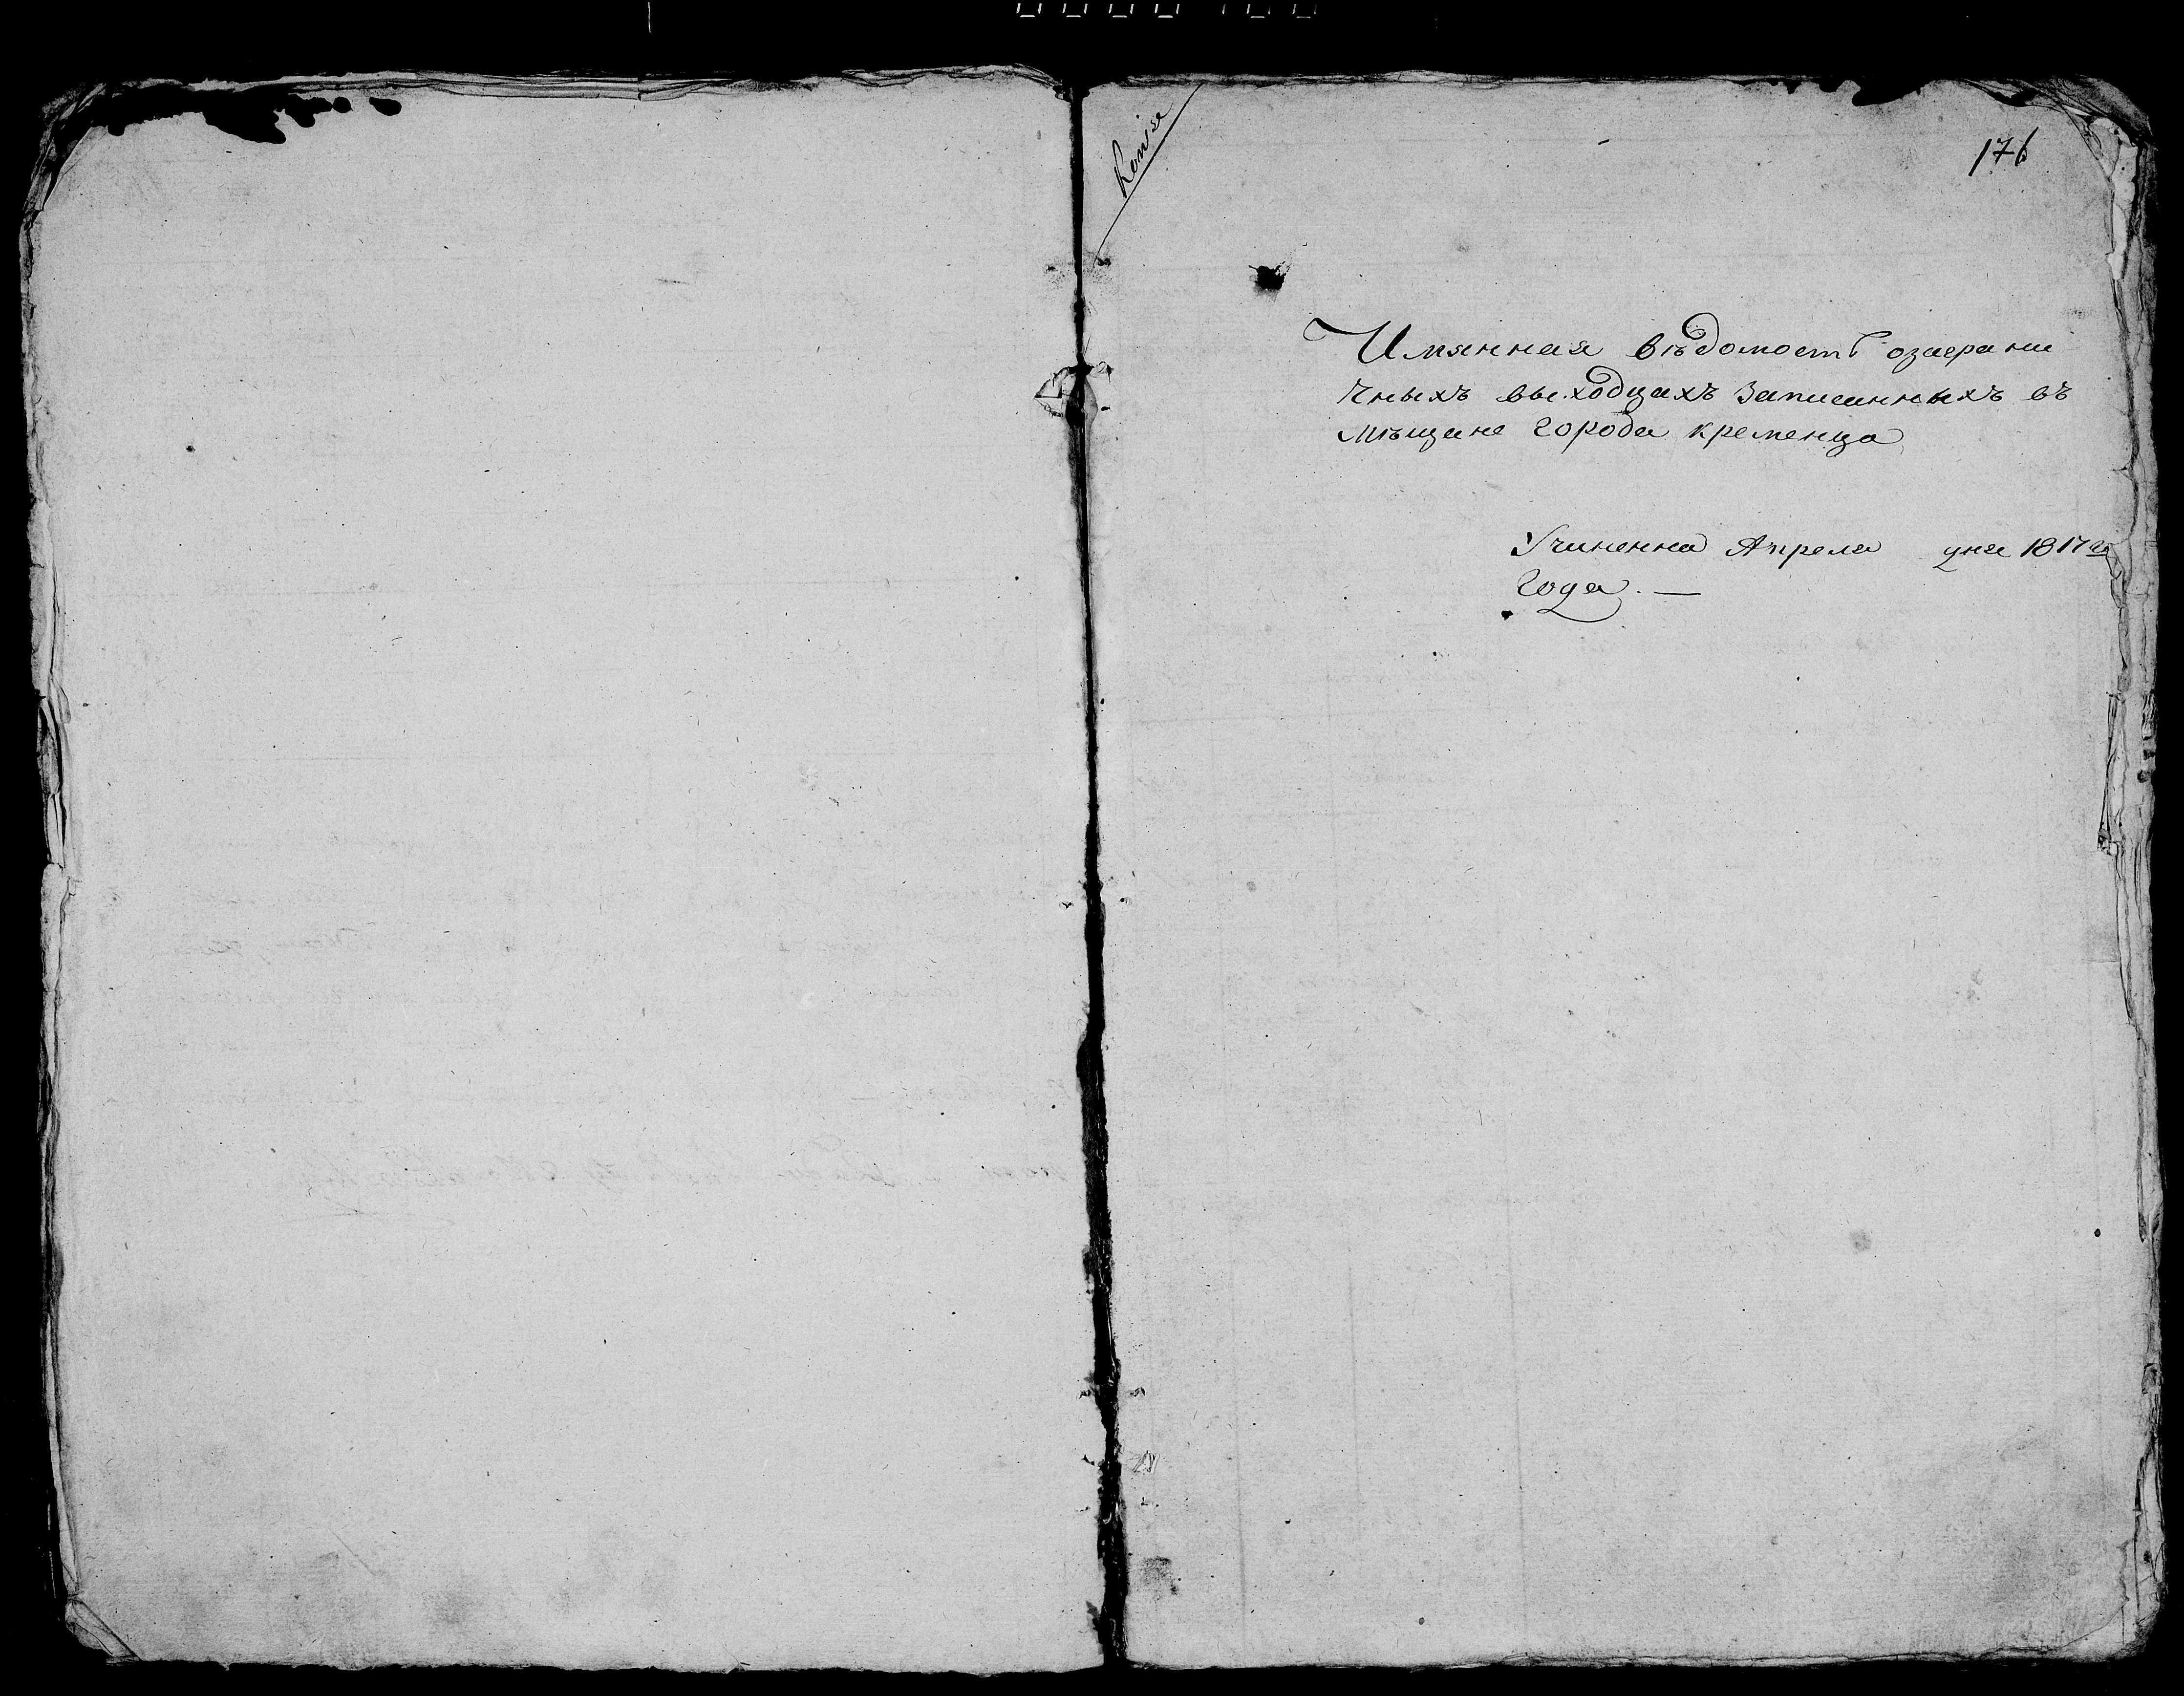 Копія
176
Имянная вѣдомость озаграни
чныхъ выходцахъ записанныхъ въ
мѣщане города кременца
Учиненна Апреля дня 1817го
года. —